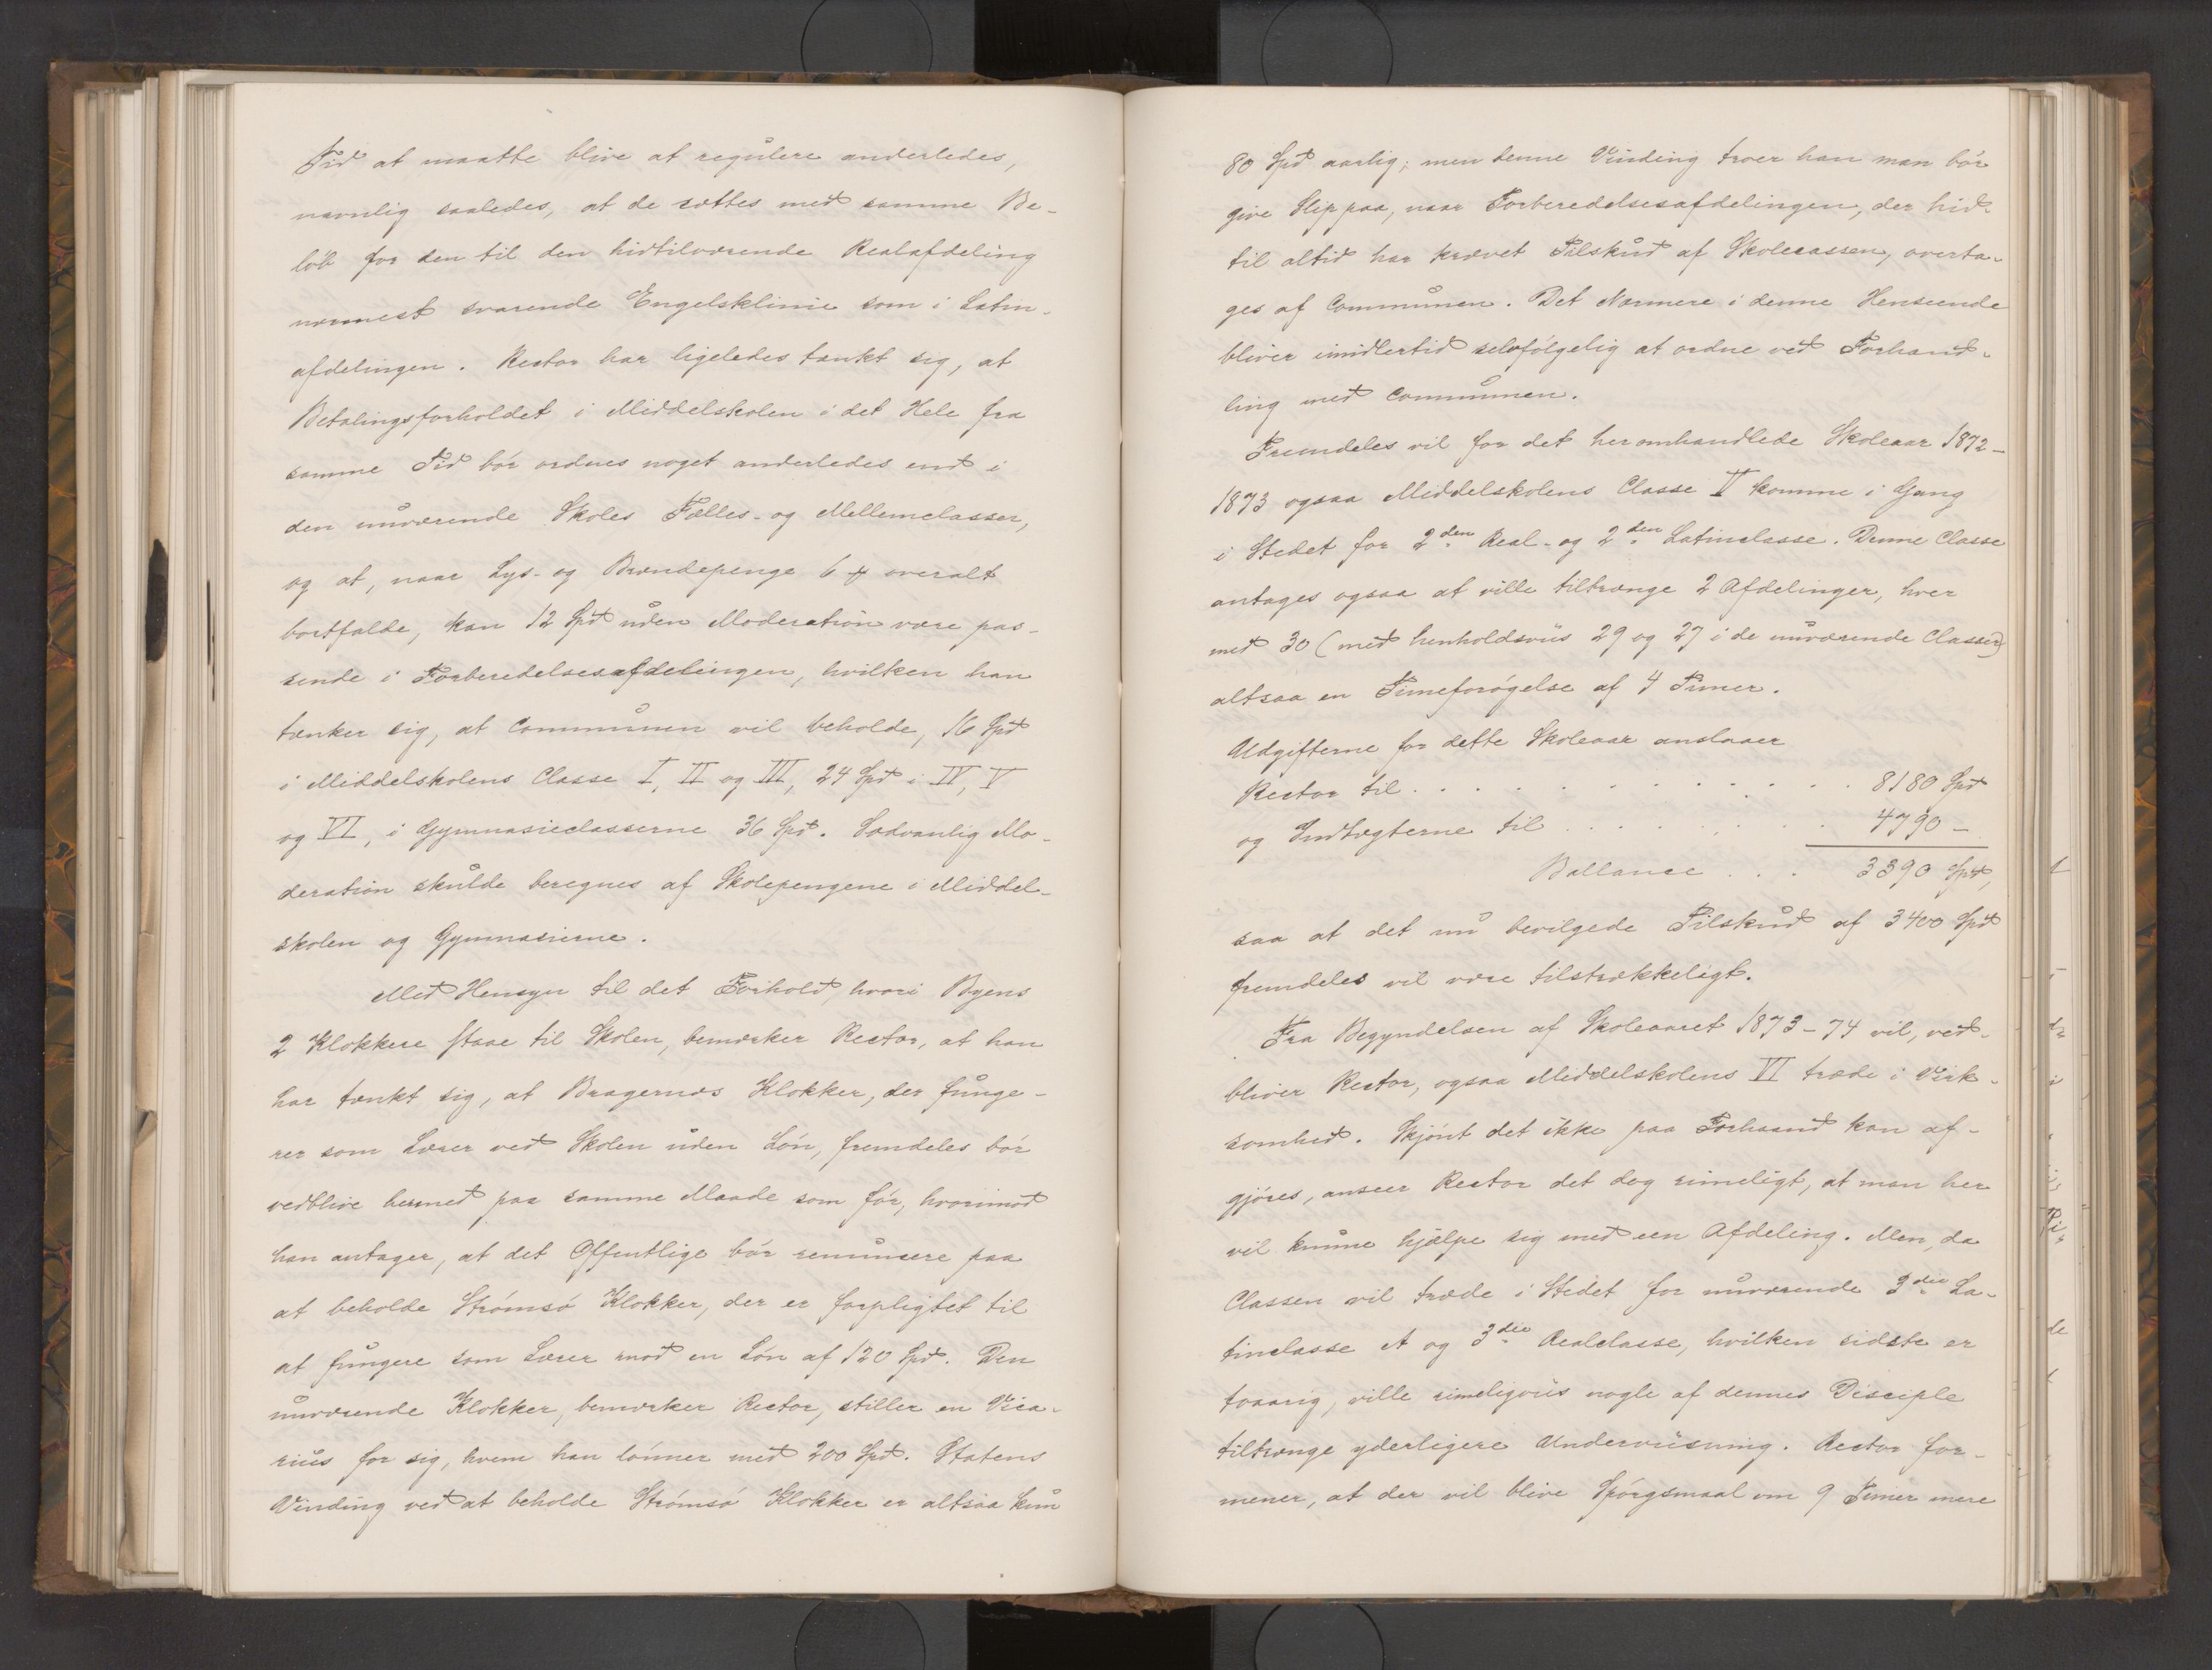 Tid at maatte blive at regulere anderledes,
navnlig saaledes, at de sættes med samme Be-
løb for den til den hidtilværende Realafdeling
nærmest svarende Engelsklinie som i Latin-
afdelingen. Rector har ligeledes tænkt sig, at
Betalingsforholdet i Middelskolen i det Hele fra
samme Tid bør ordnes noget anderledes end i
den nuværende Skoles Fælles- og Mellemclasser,
og at, naar Lys- og Brændepenge 6 ꝟ overalt
bortfalde, kan 12 Spd uden Moderation være pas-
sende i Forberedelsesafdelingen, hvilken han
tænker sig, at Communen vil beholde, 16 Spd
i Middelskolens Classe I, II og III, 24 Spd i IV, V
og VI, i Gymnasieclasserne 36 Spd. Sædvanlig Mo-
deration skulde beregnes af Skolepengene i Middel-
skolen og Gymnasierne.
Med Hensyn til det Forhold, hvori Byens
2 Klokkere staae til Skolen, bemærker Rector, at han
har tænkt sig, at Bragernæs Klokker, der funge-
rer som Lærer ved Skolen uden Løn, fremdeles bør
vedblive hermed paa samme Maade som før, hvorimod
han antager, at det Offentlige bør renuncere paa
at beholde Strømsø Klokker, der er forpligtet til
at fungere som Lærer mod en Løn af 120 Spd. Den
nuværende Klokker, bemærker Rector, stiller en Vica-
rius for sig, hvem han lønner med 200 Spd. Statens
Vinding ved at beholde Strømsø Klokker er altsaa kun
80 Spd aarlig; men denne Vinding troer han man bør
give Slip paa, naar Forberedelsesafdelingen, der hid-
til altid har krævet Tilskud af Skolecassen, overta-
ges af Communen. Det Nærmere i denne Henseende
bliver imidlertid selvfølgelig at ordne ved Forhand-
ling med Communen.
Fremdeles vil for det heromhandlede Skoleaar 1872-
1873 ogsaa Middelskolens Classe V komme i Gang
i Stedet for 2den Real- og 2den Latinclasse. Denne Classe
antages ogsaa at ville tiltrænge 2 Afdelinger, hver
med 30 (med henholdsviis 29 og 27 i de nuværende Classer)
altsaa en Timeforøgelse af 4 Timer.
Udgifterne for dette Skoleaar anslaaer
Rector til . . . . . . . . . . . . 8180 Spd
og Indtægterne til . . . . . . . . 4790 –
Ballance . . . 3390 Spd,
saa at det nu bevilgede Tilskud af 3400 Spd
fremdeles vil være tilstrækkeligt.
Fra Begyndelsen af Skoleaaret 1873-74 vil, ved-
bliver Rector, ogsaa Middelskolens VI træde i Virk-
somhed. Skjønt det ikke paa Forhaand kan af-
gjøres, anseer Rector det dog rimeligt, at man her
vil kunne hjælpe sig med een Afdeling. Men, da
Classen vil træde i Stedet for nuværende 3die La-
tinclasse A og 3die Realclasse, hvilken sidste er
toaarig, ville rimeligviis nogle af dennes Disciple
tiltrænge yderligere Underviisning. Rector for-
mener, at der vil blive Spørgsmaal om 9 Timer mere